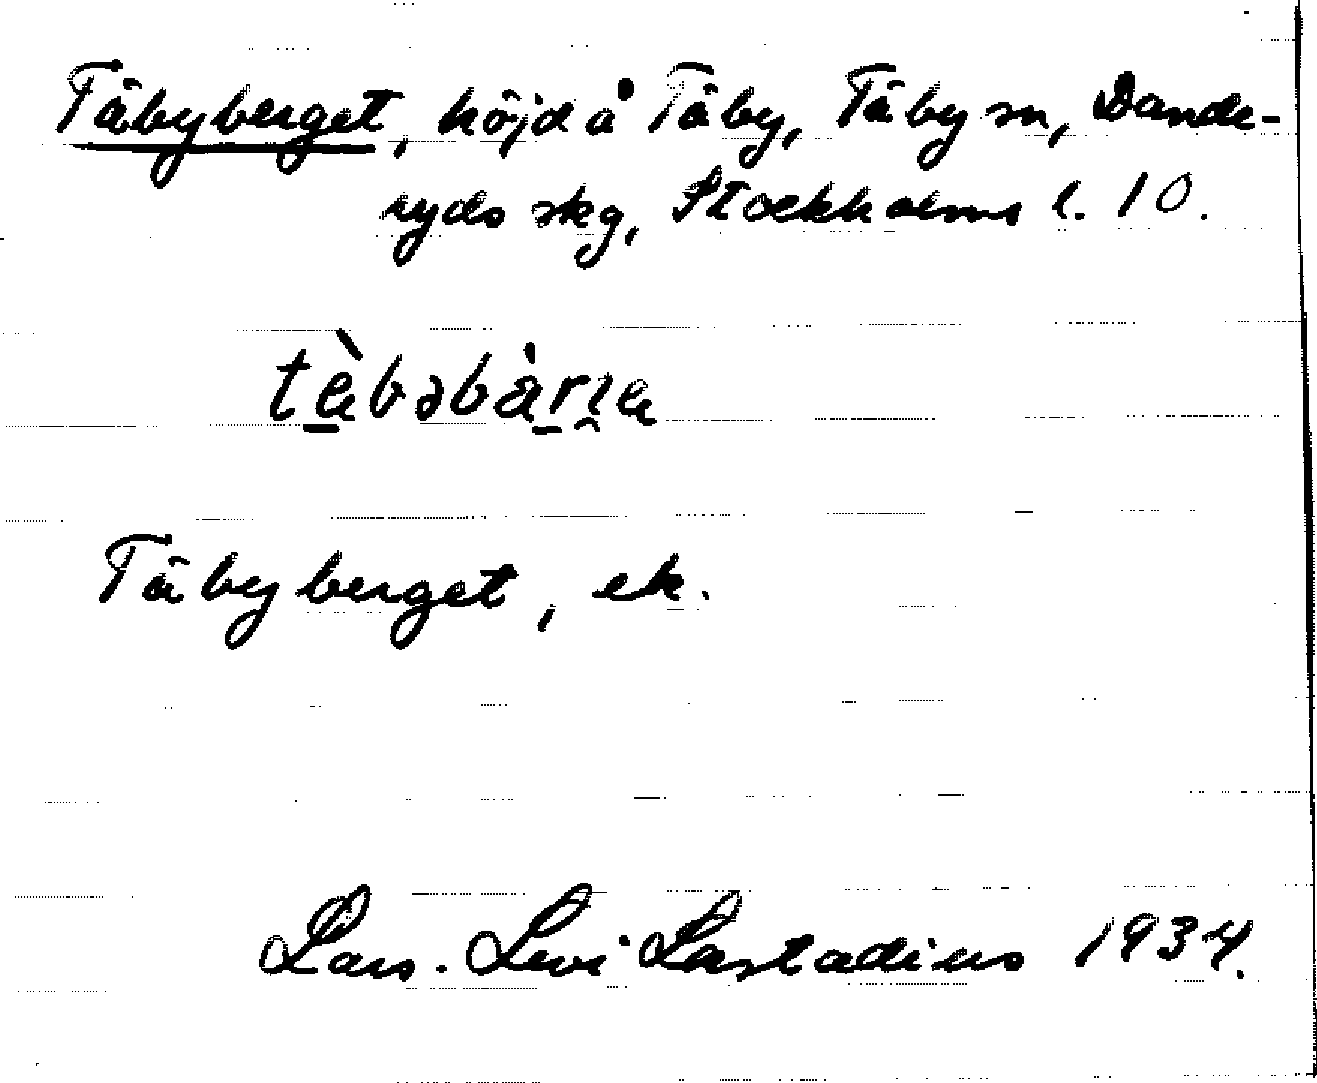 Täbyberget, höjd å Täby, Täby sn, Dande-
ryds skg, Stockholms l. 10.
Täbyberget, ek.
Lars-Levi Læstadius 1934.